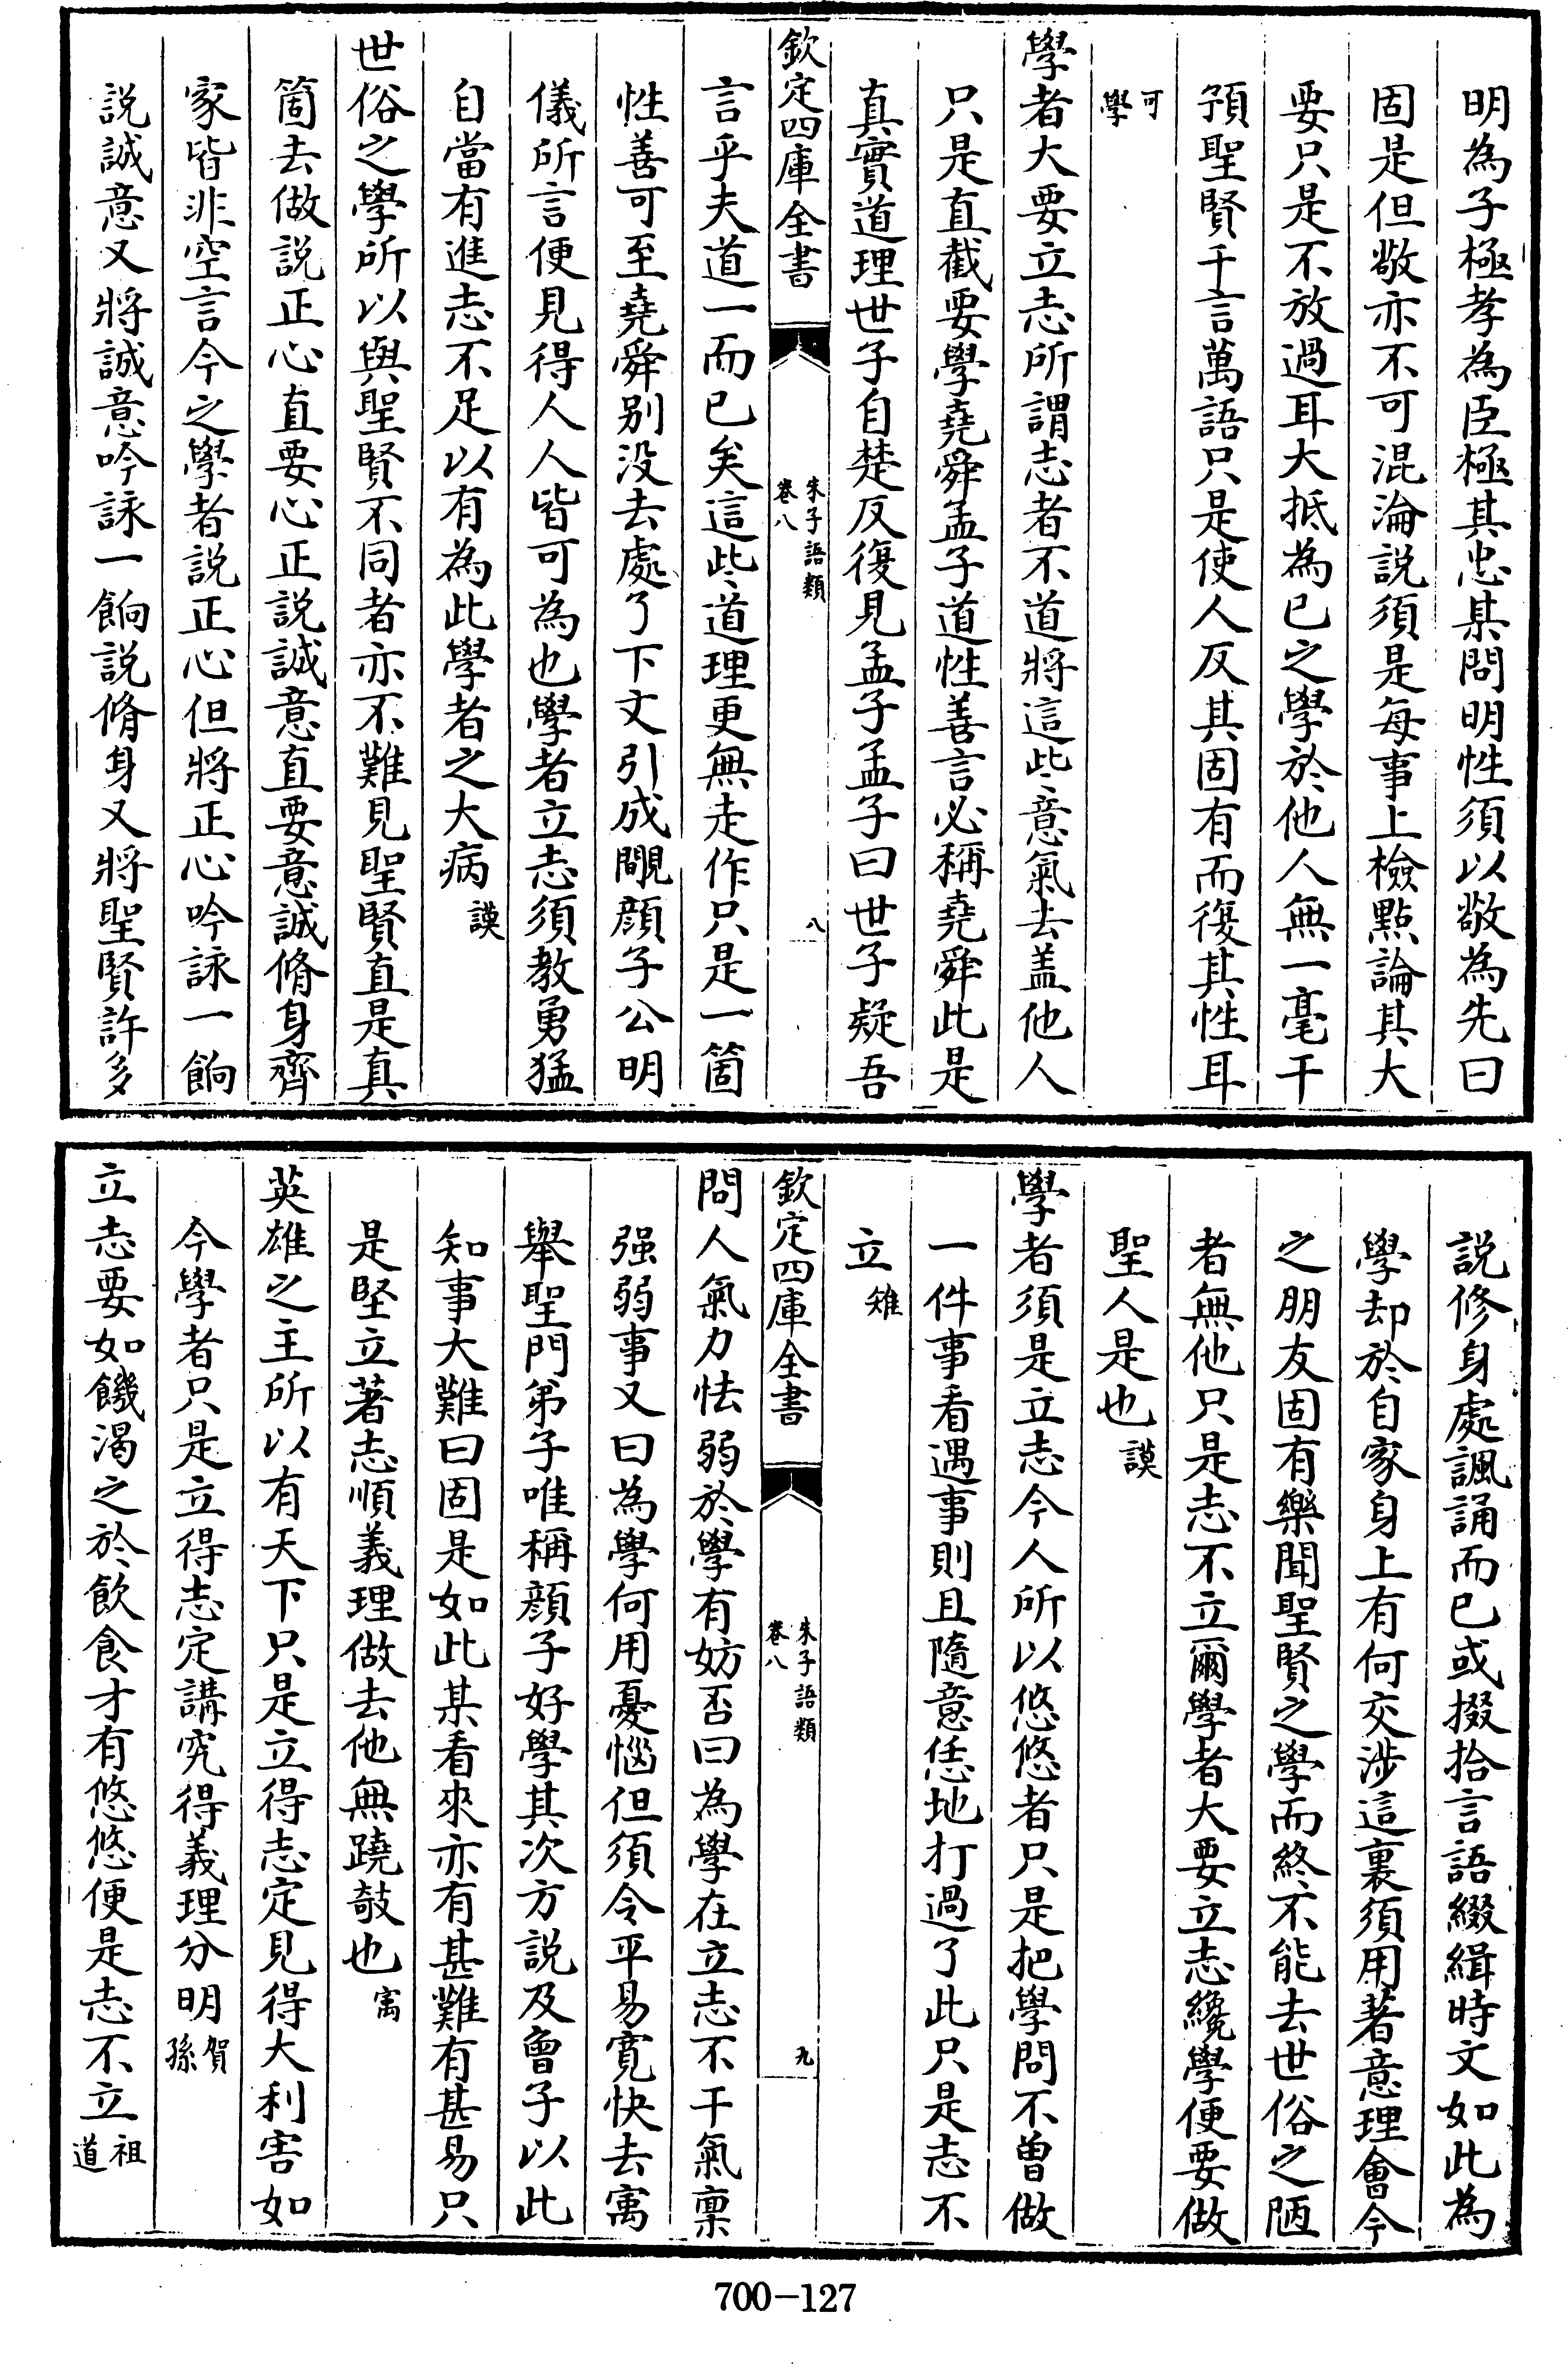 明為子極孝為臣極其忠某問明性須以敬為先曰
固是但敬亦不可混淪説須是每事上檢點論其大
要只是不放過耳大抵為已之學於他人無一毫干
預聖賢千言萬語只是使人反其固有而復其性耳
可學
學者大要立志所謂志者不道將這些意氣去盖他人
只是直截要學堯舜孟子道性善言必稱堯舜此是
真實道理世子自楚反復見孟子孟子曰世子疑吾
欽定四庫全書 朱子語類 卷八 八
言乎夫道一而已矣這些道理更無走作只是一箇
性善可至堯舜别没去處了下文引成覸顔子公明
儀所言便見得人人皆可為也學者立志須教勇猛
自當有進志不足以有為此學者之大病謨
世俗之學所以與聖賢不同者亦不難見聖賢直是真
箇去做説正心直要心正説誠意直要意誠脩身齊
家皆非空言今之學者説正心但將正心吟詠一餉
説誠意又將誠意吟詠一餉説脩身又將聖賢許多
説修身處諷誦而已或掇拾言語綴緝時文如此為
學却於自家身上有何交涉這裏須用著意理會今
之朋友固有樂聞聖賢之學而終不能去世俗之陋
者無他只是志不立爾學者大要立志纔學便要做
聖人是也謨
學者須是立志今人所以悠悠者只是把學問不曾做
一件事看遇事則且隨意恁地打過了此只是志不
立雉
欽定四庫全書 朱子語類 卷八 九
問人氣力怯弱於學有妨否曰為學在立志不干氣稟
强弱事又曰為學何用憂惱但須令平易寛快去寓
舉聖門弟子唯稱顔子好學其次方説及曾子以此
知事大難曰固是如此某看來亦有甚難有甚易只
是堅立著志順義理做去他無蹺攲也寓
英雄之主所以有天下只是立得志定見得大利害如
今學者只是立得志定講究得義理分明賀孫
立志要如饑渴之於飲食才有悠悠便是志不立祖道
700-127